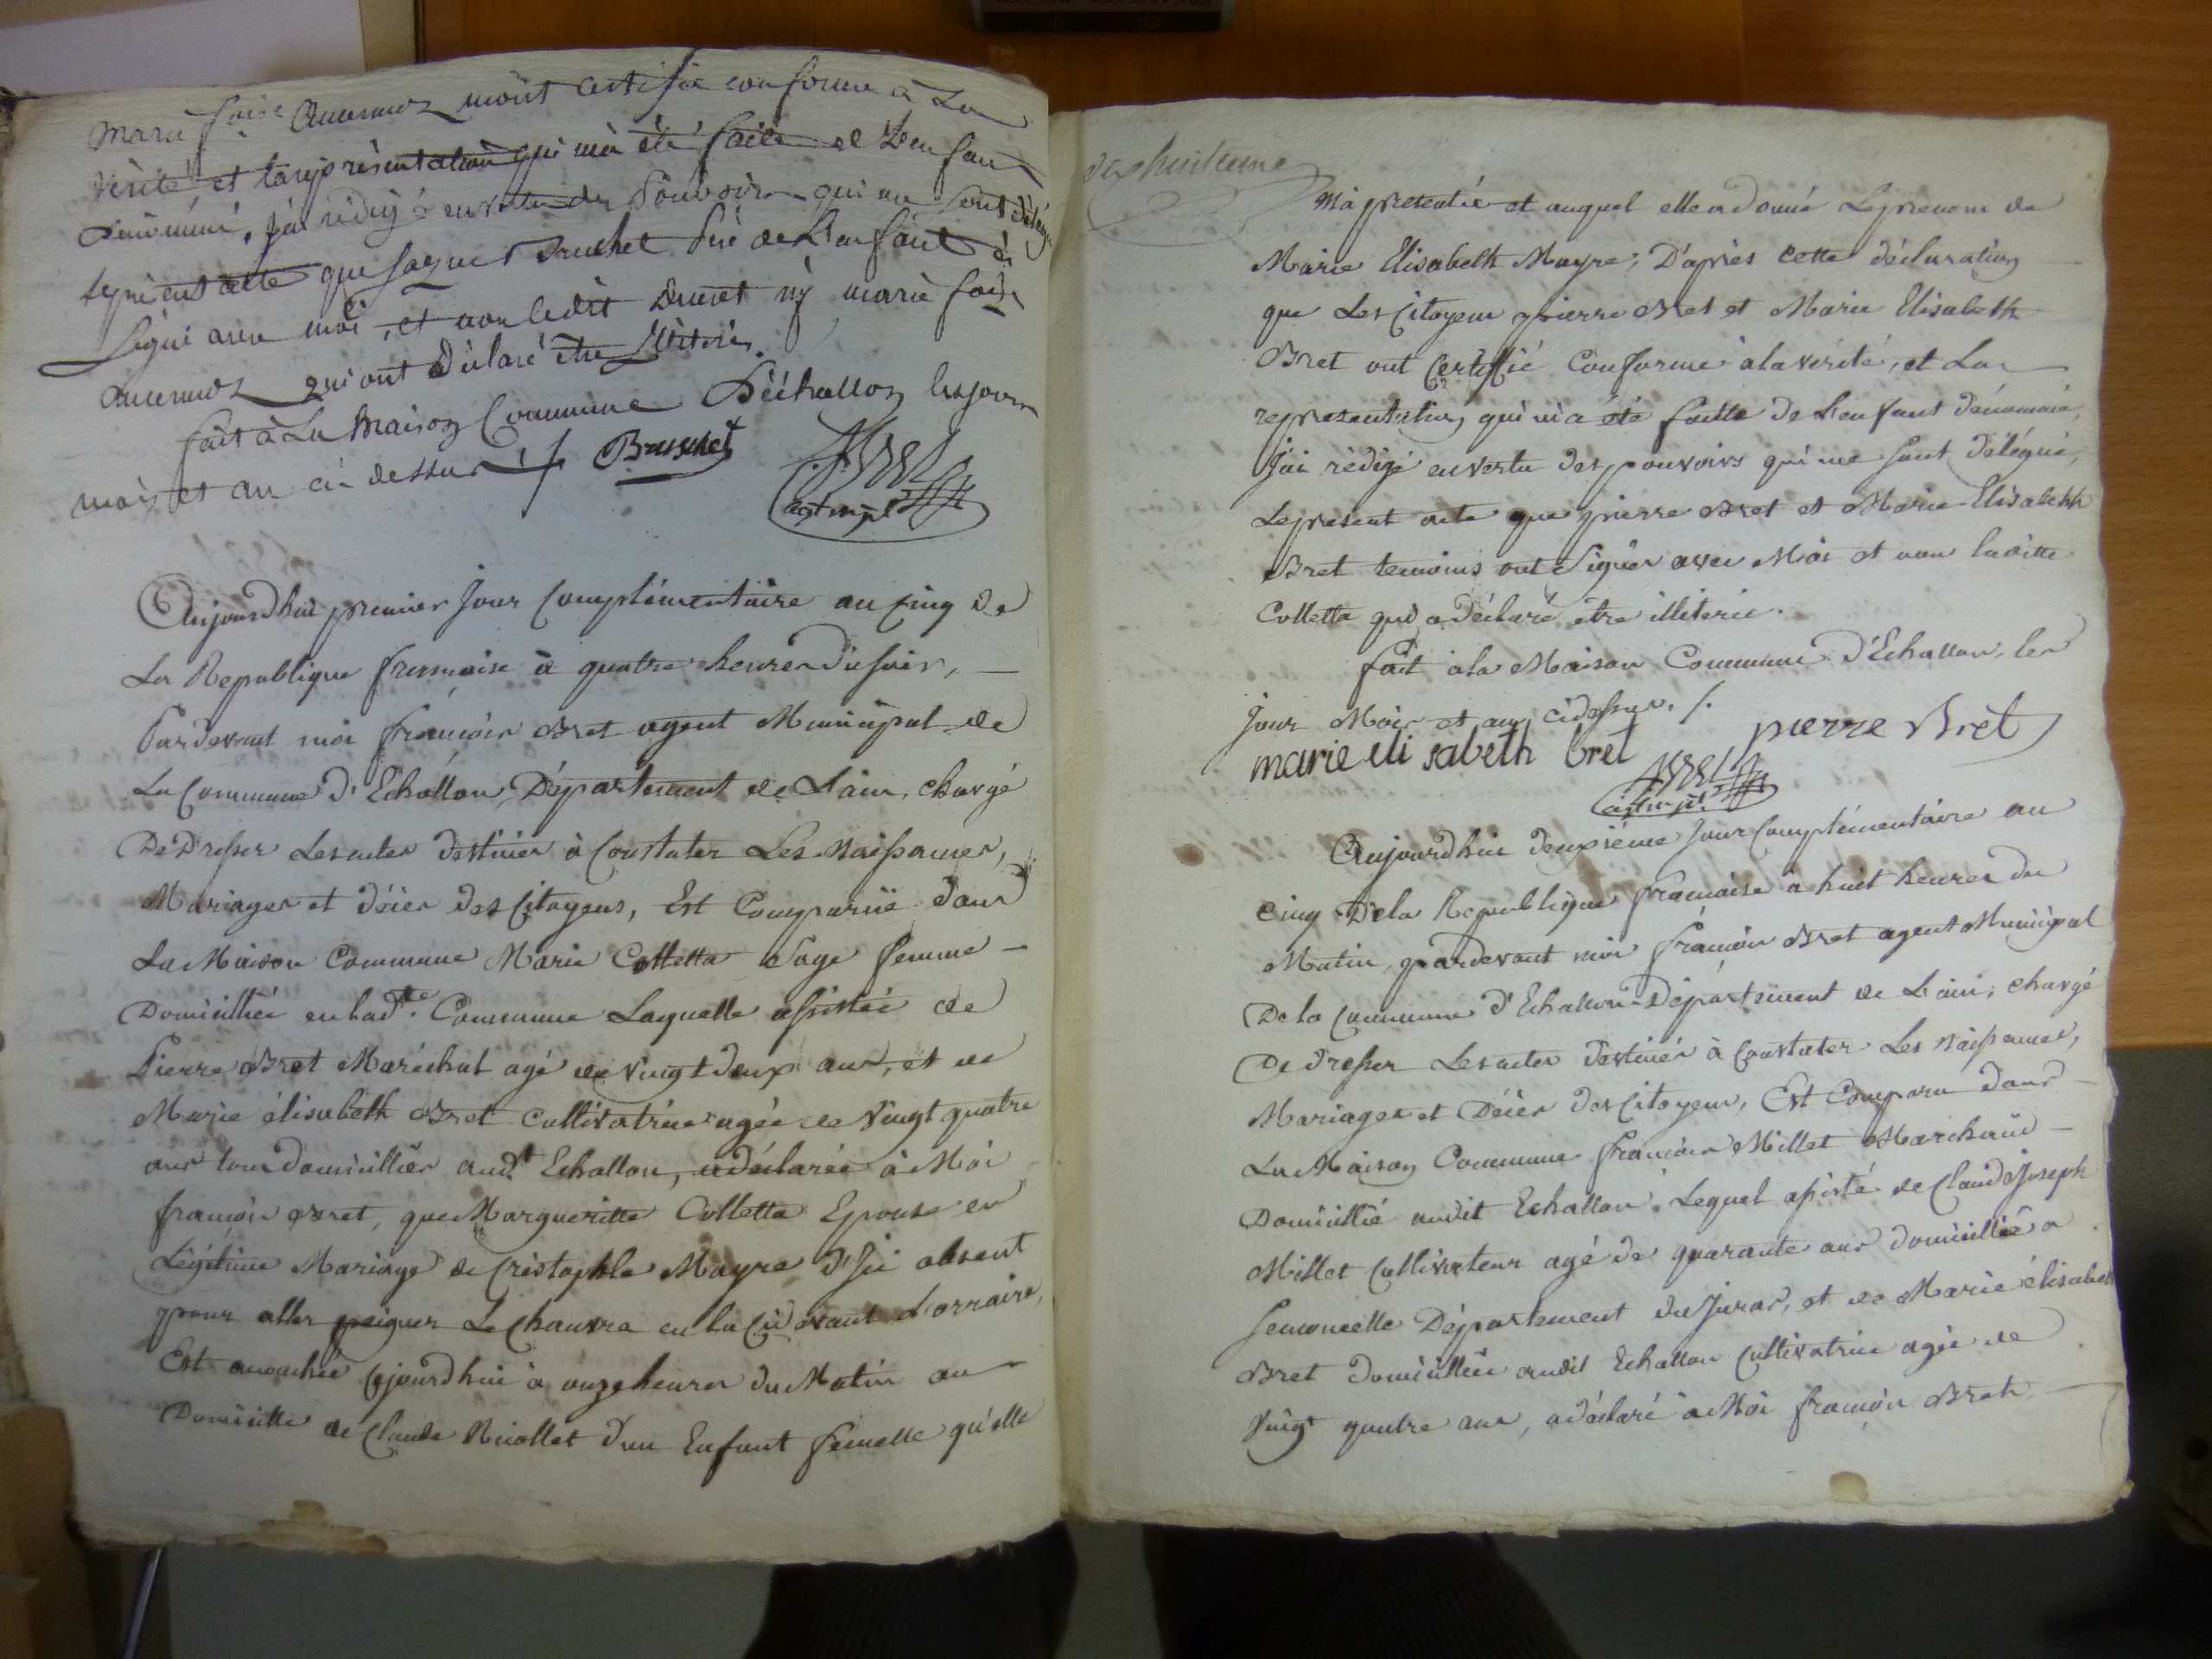 marie foise Ancermoz m'ont certifié conforme à La
verité et la représentation qui m'a été faite de L'enfan
dénommé, J'ai rédigé en vertu des Pouvoirs qui me sont délégu
Le présent acte que Jaques Bruchet Pere de L'enfant à
signé avec moi, et non ledit Drunet ny marie foise
Ancermoz qui ont déclaré être Illiterés.
fait à La Maison Commune D'échallon les jour
mois et an ci-dessus ./. J Bruchet
Bret
agt mpl
Aujourdhui premier jour Complémentaire an cinq de
La Republique francaise à quatre heures du soir, —
Pardevant moi françois Bret agent Municipal de
La Commune d'Echallon, Département de Lain, chargé
De Dresser Les actes destinés à Constater Les Naissances,
Mariages et décès des Citoyens, Est Comparüe dans
La Maison Commune Marie Colletta Sage femme —
Domicilliée en lad.te Commune Laquelle assistée de
Pierre Bret Maréchal agé de vingt deux ans, et de
Marie élisabeth Bret cultivatrice agée de Vingt quatre
ans tous domicilliés aud.t Echallon, a déclarée à Moi
françois Bret, que Margueritte Colletta Epouse en
Légitime Mariage de Cristophle Mayre d'Ici absent
pour aller peigner Le Chanvre en la Cidevant Lorraine,
Est accouchée Cejourdhui à onze heures du Matin au
Domicille de Claude Nicollet d'un Enfant femelle qu'elle
dix huitieme
M'a presentée et auquel elle a donné Le prenom de
Marie Elisabeth Mayre, D'après cette déclaration
que Les Citoyens pierre Bret et Marie Elisabeth
Bret ont Certiffié Conforme à la vérité, et La
representation qui m'a été faitte de L'enfant dénommé,
J'ai rédigé en vertu des pouvoirs qui me sont délégué,
Le present acte que pierre Bret et Marie Elisabethh
Bret temoins ont Signés avec Moi et non laditte
Colletta qui a déclaré être illiterée.
fait à la Maison Commune d'Echallon, les
jour Mois et an cidessus. /.
marie eli sabeth bret pierre Bret
Bret
agt mpl
Aujourdhui deuxième jour Complémentaire an
cinq De la Republique française à huit heures du
Matin, pardevant moi françois Bret agent Municipal
De la Commune d'Echallon Département de Lain, chargé
De dresser Les actes destinés à Constater Les Naissances,
Mariages et Décès des Citoyens, Est Comparu dans —
La Maison Commune françois Millet Marchand —
Domicillié audit Echallon. Lequel assisté de Claude Joseph
Millet Cultivateur agé de quarante ans domicillié a
Semoncelle Département du Jura, et de Marie élisabeth
Bret domicilliée audit Echallon Cultivatrice agée de
Vingt quatre ans, a déclaré à Moi françois Bret